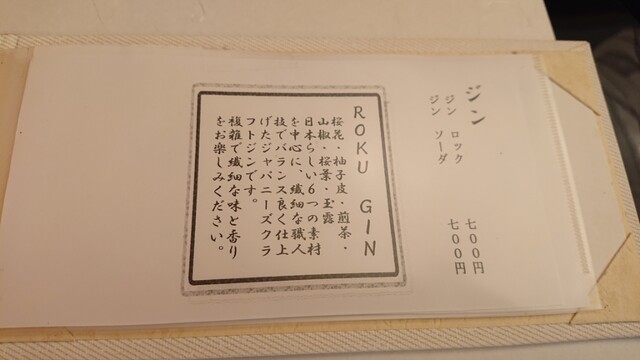 ジン
ジン ロック 七〇〇円
ジン ソーダ 七〇〇円
ROKU GIN
桜花・柚子皮・煎茶・
山椒・桜葉・玉露
日本らしい6つの素材
を中心に、繊細な職人
技でバランス良く仕上
げたジャパニーズクラ
フトジンです。
複雑で繊細な味と香り
をお楽しみください。